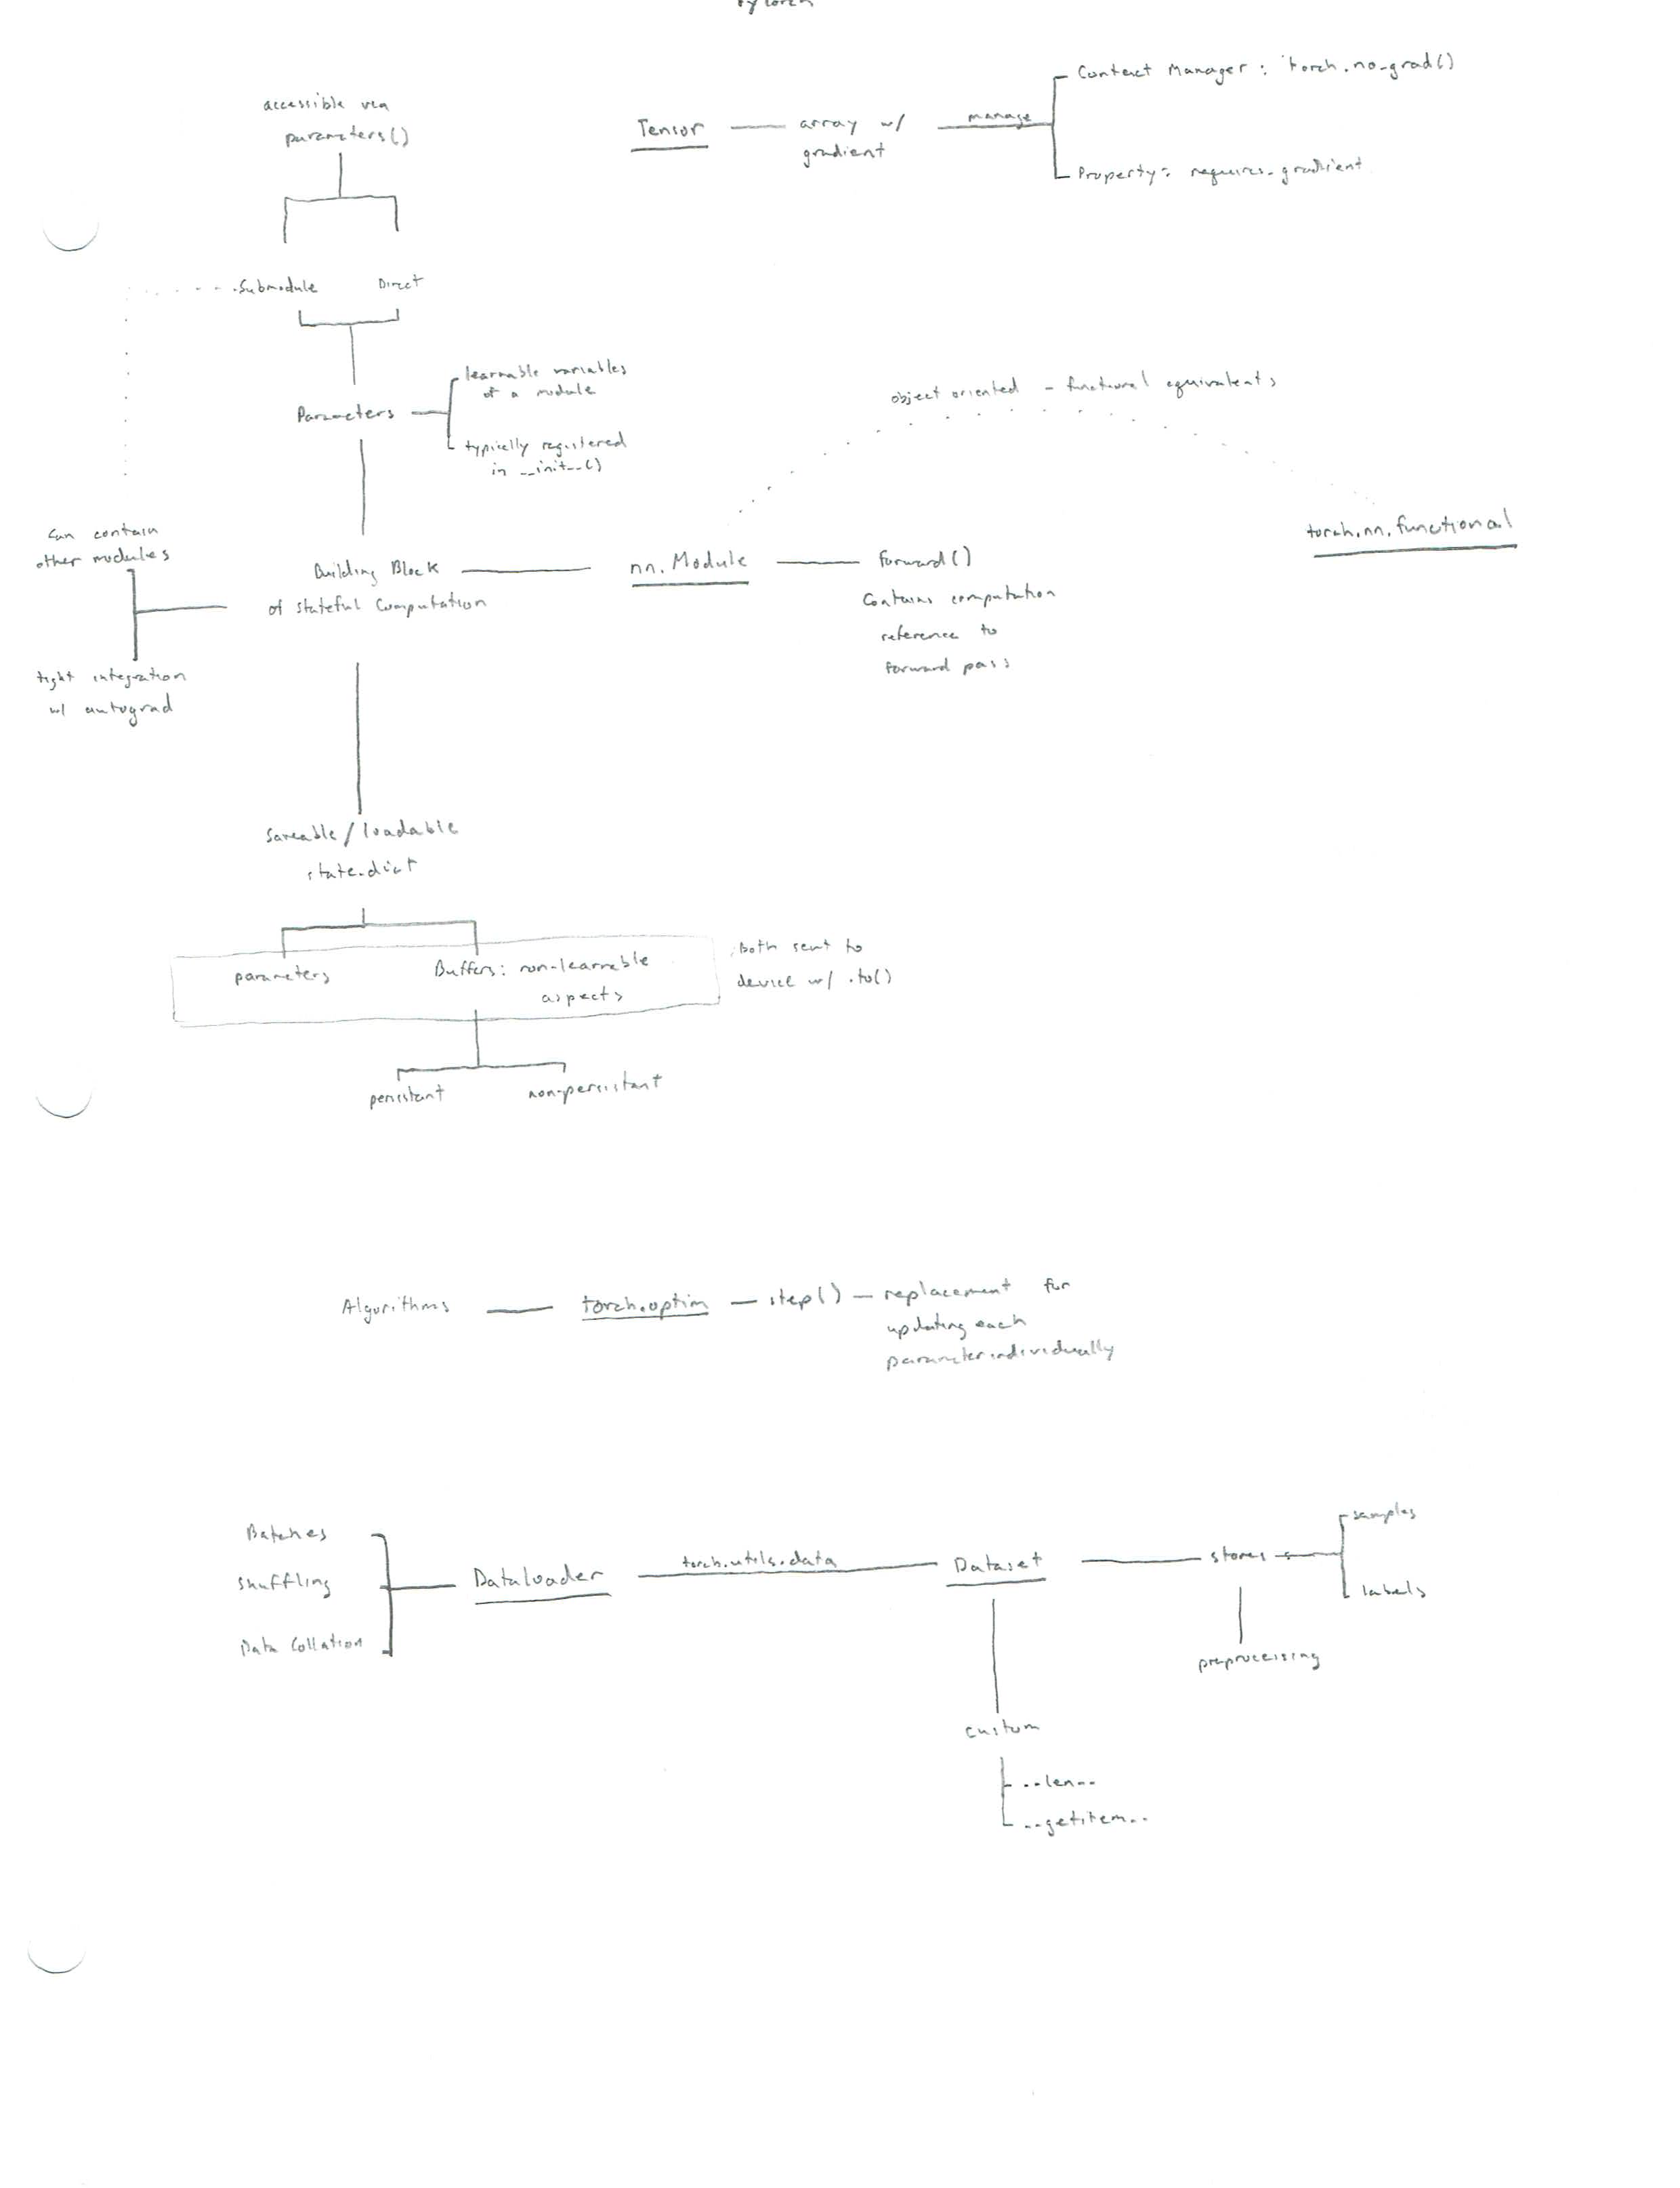 Pytorch
accessible via
parameters()
Tensor
array w/
gradient
manage
Context Manager: torch.no_grad()
Property: requires_gradient
Submodule
Direct
Parameters
learnable variables
of a module
typically registered
in __init__()
object oriented - functional equivalents
can contain
other modules
tight integration
w/ autograd
Building Block
of stateful Computation
nn.Module
forward()
Contains computation
reference to
forward pass
torch.nn.functional
saveable/loadable
state_dict
parameters
Buffers: non-learnable
aspects
Both sent to
device w/ .to()
persistant
non-persistant
Algorithms
torch.optim
step()
replacement for
updating each
parameter individually
Batches
Shuffling
Data Collation
DataLoader
torch.utils.data
Dataset
stores
samples
labels
preprocessing
custom
__len__
__getitem__